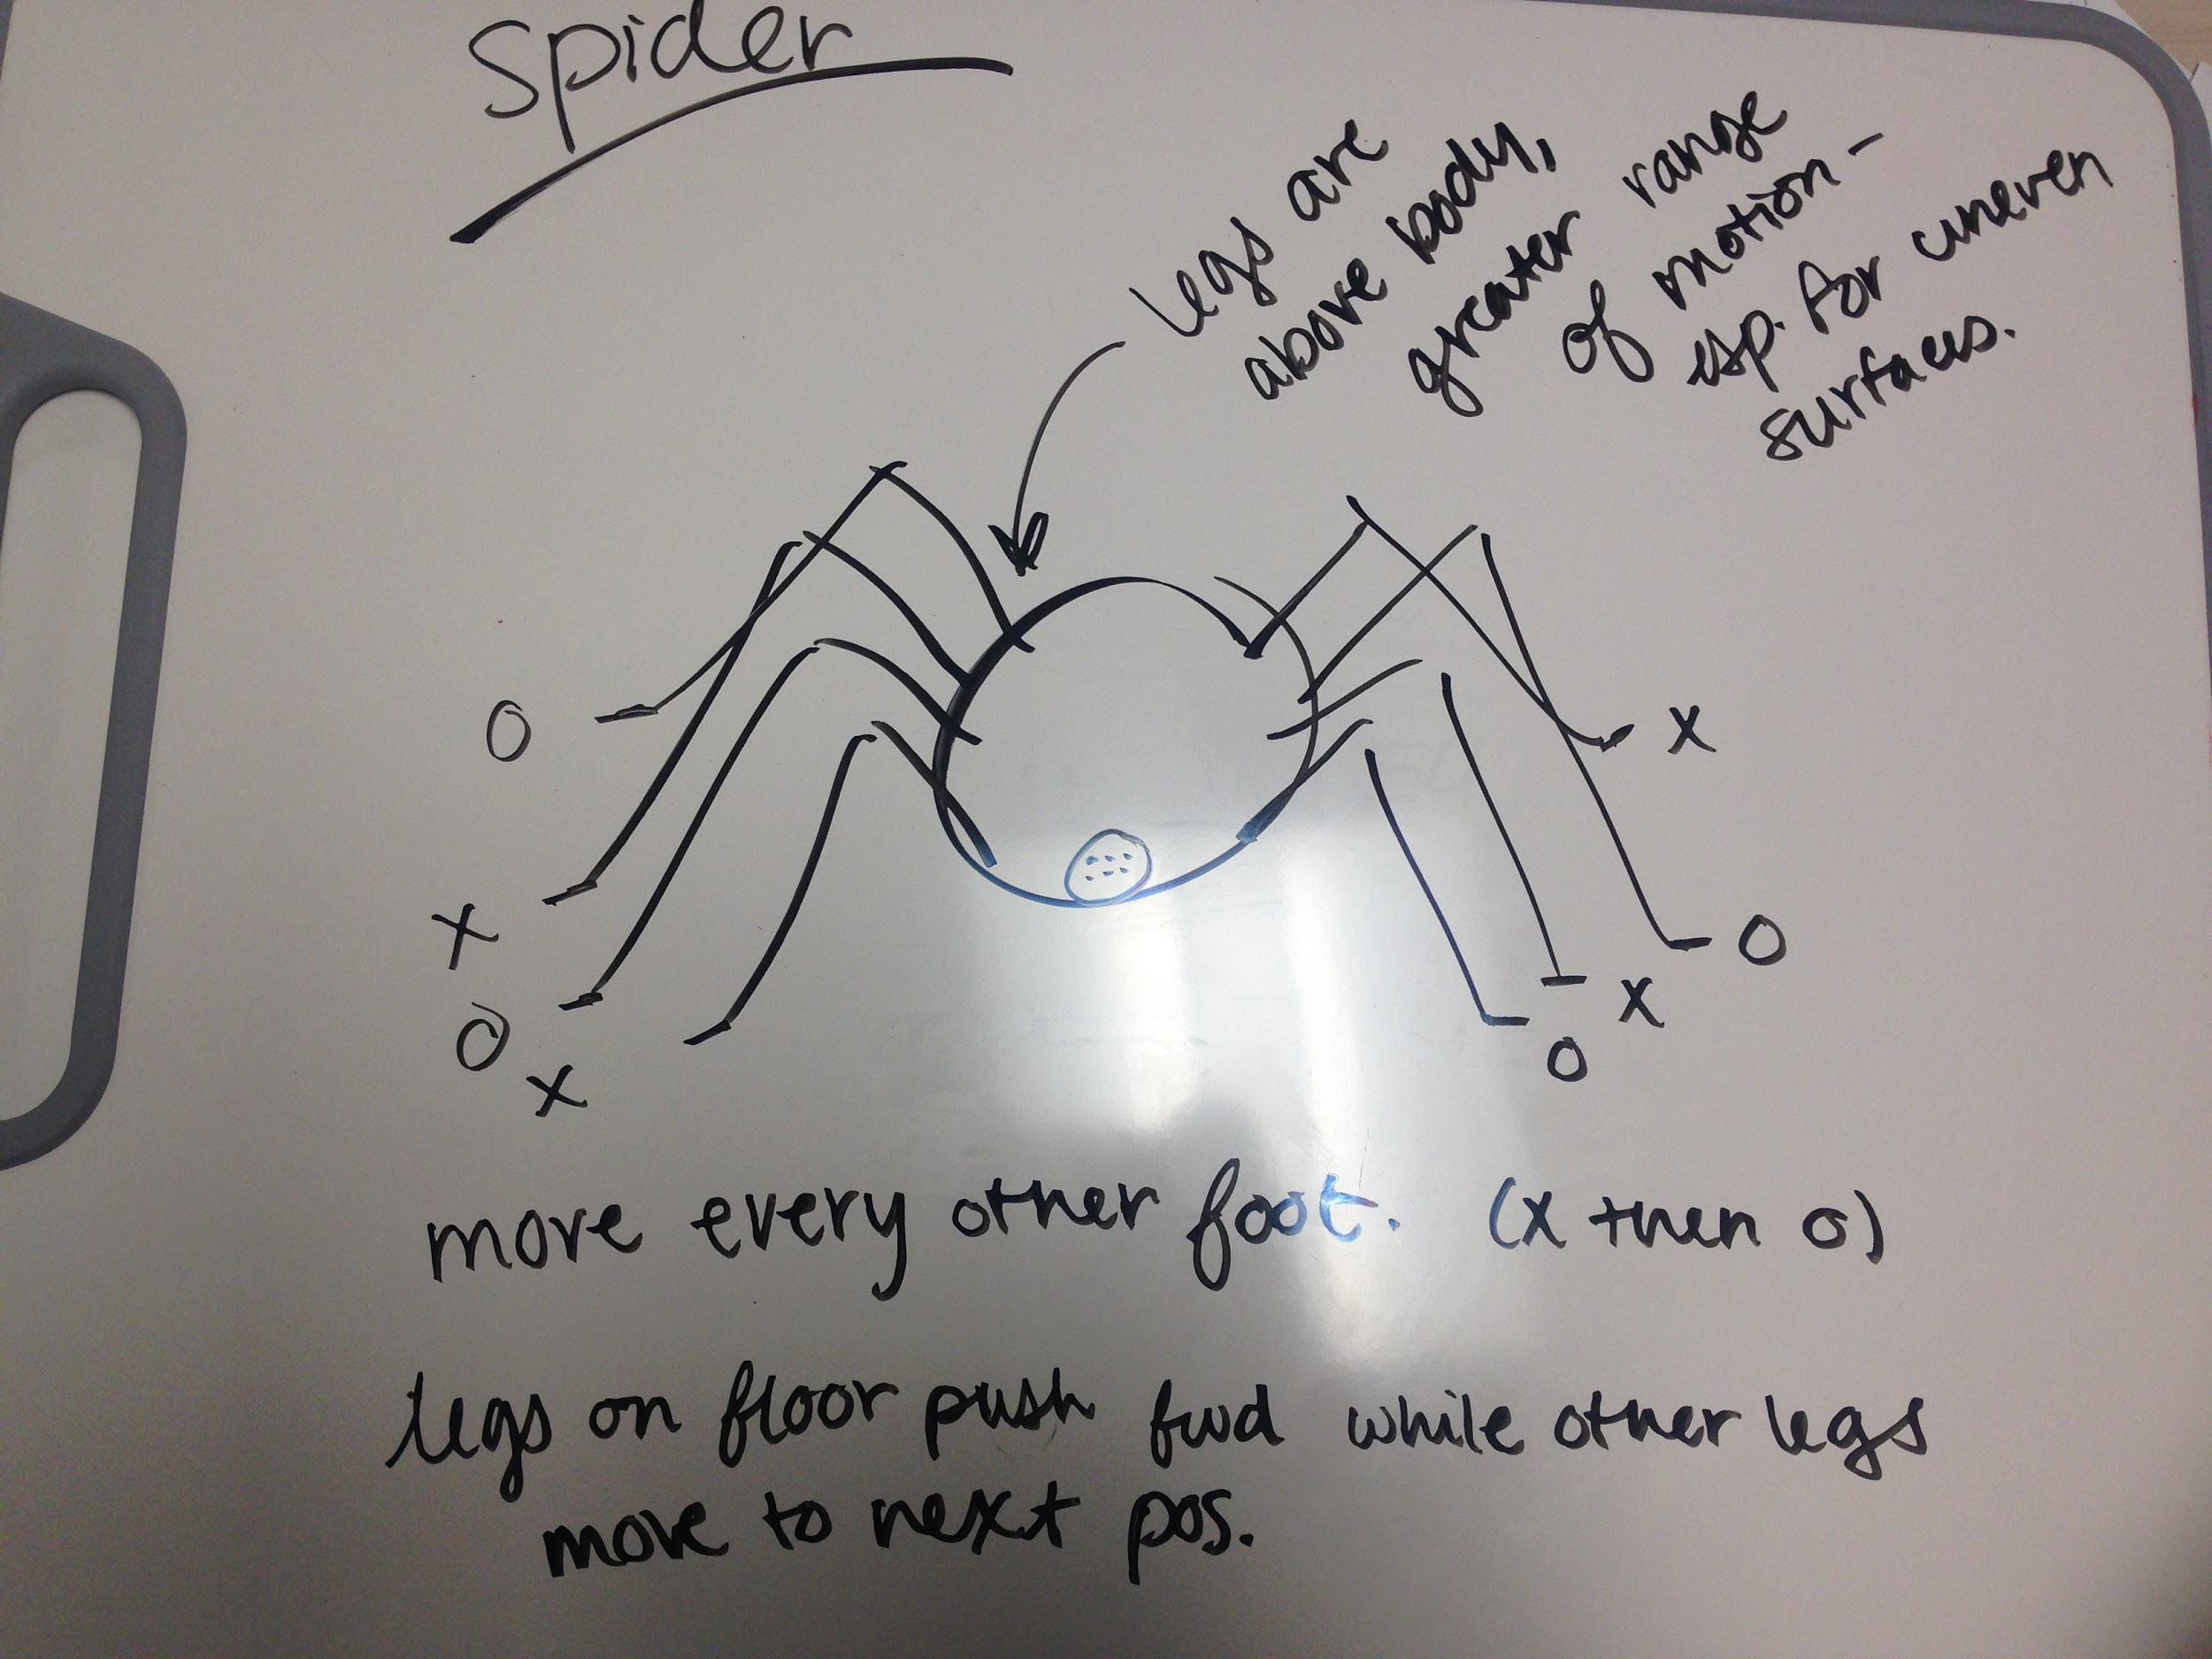 Spider
legs are
above body,
greater range
of motion -
esp. for uneven
surfaces.
O
X
X
O
O
X
X
O
move every other foot. (x then o)
legs on floor push fwd while other legs
move to next pos.